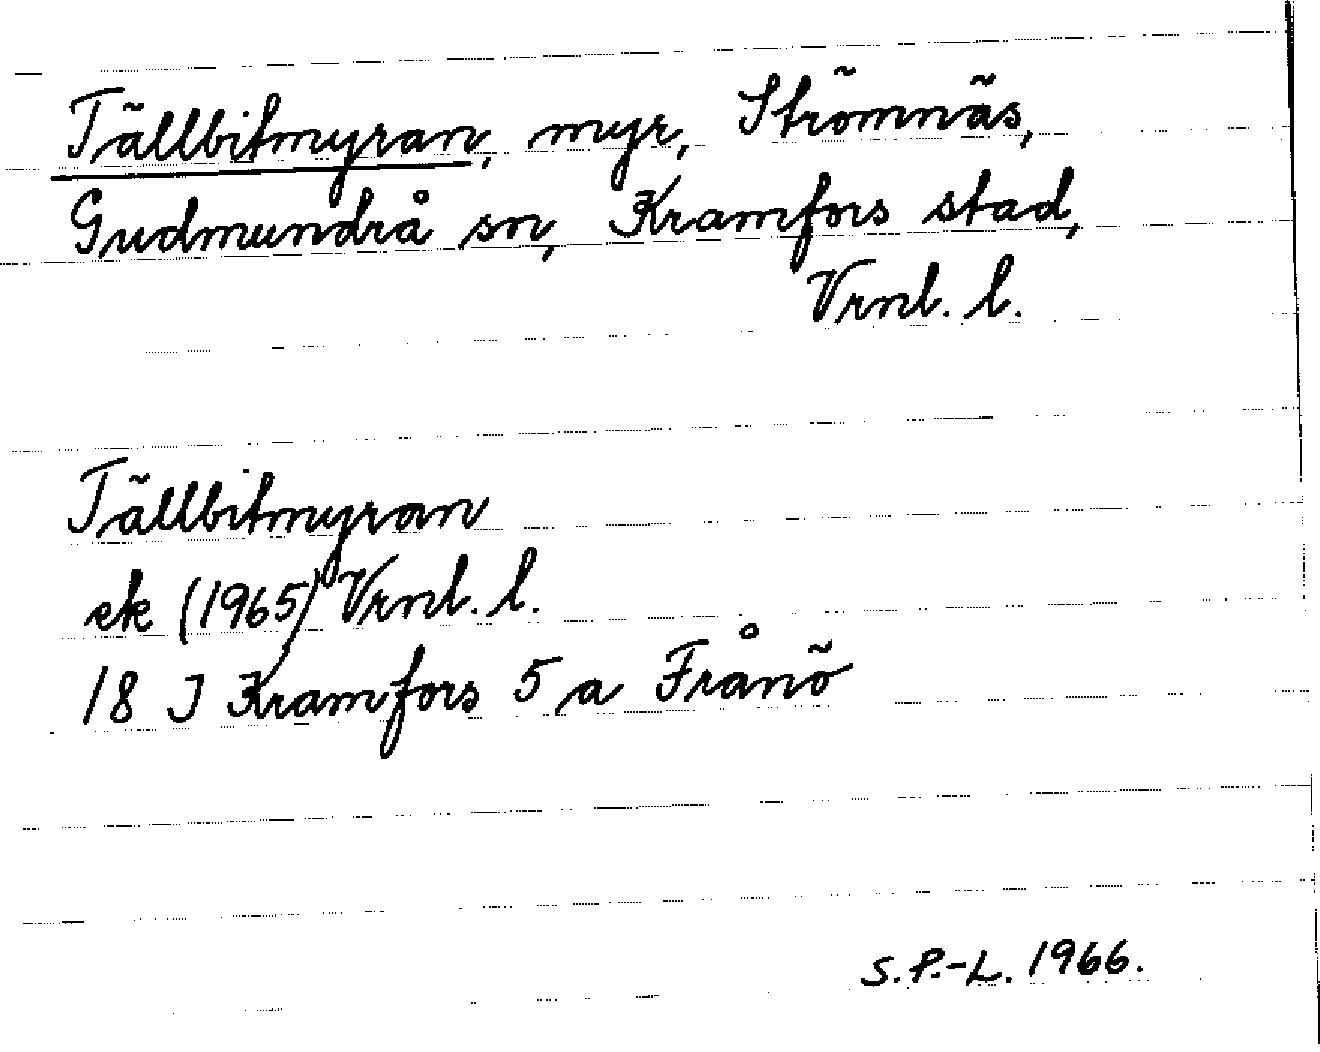 Tällbitmyran, myr, Strömnäs,
Gudmundrå sn, Kramfors stad,
Vrnl. l.
Tällbitmyran
ek (1965) Vrnl. l.
18 J Kramfors 5 a Frånö
S.P.-L. 1966.